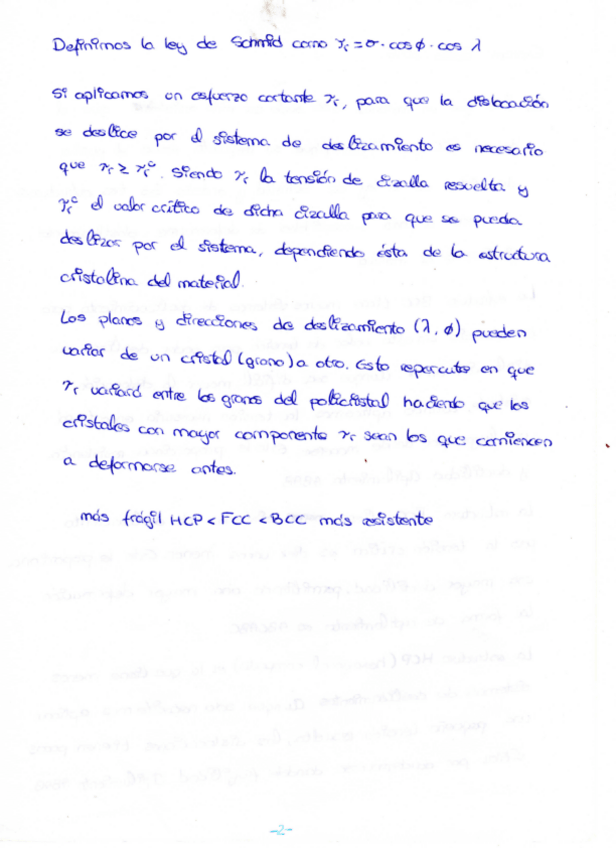 Definimos la ley de Schmid como τr = σ · cos ϕ · cos λ
Si aplicamos un esfuerzo cortante τr, para que la dislocación
se deslice por el sistema de deslizamiento es necesario
que τr ≥ τr^c. Siendo τr la tensión de cizalla resuelta y
τr^c el valor crítico de dicha cizalla para que se pueda
deslizar por el sistema, dependiendo ésta de la estructura
cristalina del material.
Los planos y direcciones de deslizamiento (λ, ϕ) pueden
variar de un cristal (grano) a otro. Esto repercute en que
τr variará entre los granos del policristal haciendo que los
cristales con mayor componente τr sean los que comiencen
a deformarse antes.
más frágil HCP < FCC < BCC más resistente
-2-